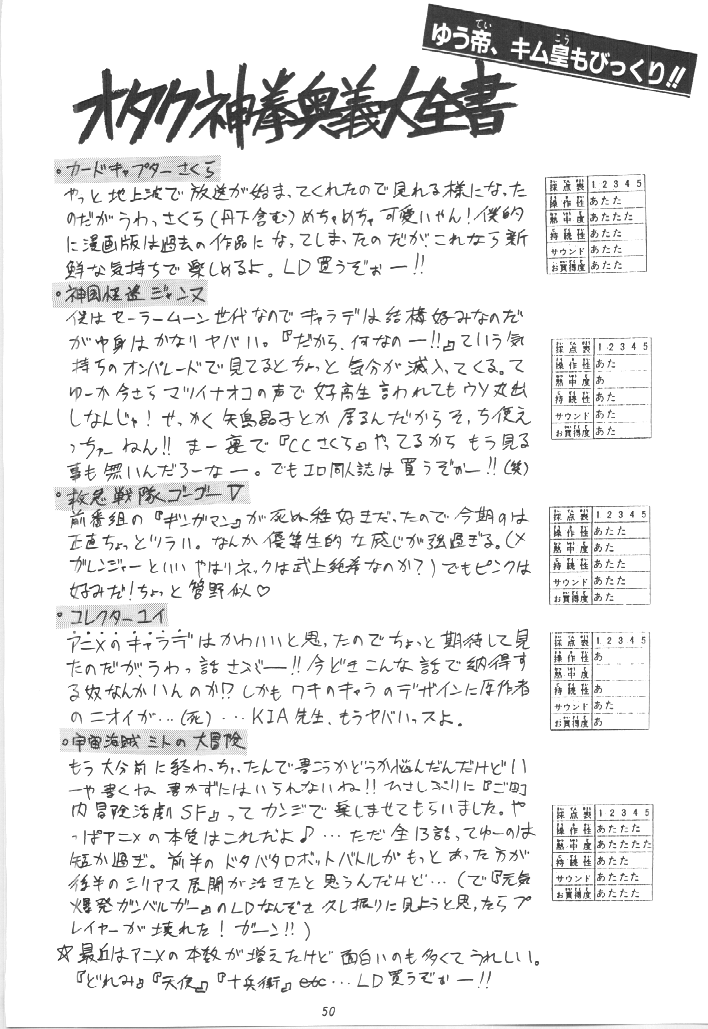 ゆう帝、キム皇もびっくり!!
オタク神拳奥義大全書
・カードキャプターさくら
やっと地上波で放送が始まってくれたので見れる様になった
のだがうわっさくら(丹下含む)めちゃめちゃ可愛いやん!僕的
に漫画版は過去の作品になってしまったのだが、これなら新
鮮な気持ちで楽しめるよ。LD買うぞぉー!!
採点表 1 2 3 4 5
操作性 あたた
熱中度 あたたた
持続性 あたた
サウンド あたた
お買得度 あたた
・神風怪盗ジャンヌ
僕はセーラームーン世代なのでキャラデは結構好みなのだ
が中身はかなりヤバい。『だから、何なのー!!』ていう気
持ちのオンパレードで見てるとちょっと気分が滅入ってくる。て
ゆーか今さらマツイナオコの声で女子高生言われてもウソ丸出
しなんじゃ!せっかく矢島晶子とか居るんだからそっち使え
っちゅーねん!!まー裏で『CCさくら』やってるからもう見る
事も無いんだろーなー。でもエロ同人誌は買うぞぉー!!(笑)
採点表 1 2 3 4 5
操作性 あた
熱中度 あ
持続性 あた
サウンド あた
お買得度 あた
・救急戦隊ゴーゴーV
前番組の『ギンガマン』が死ぬ程好きだったので今期のは
正直ちょっとツラい。なんか優等生的な感じが強過ぎる。(メ
ガレンジャーといいやはりネックは武上純希なのか?)でもピンクは
好みだ!ちょっと菅野似♡
採点表 1 2 3 4 5
操作性 あたた
熱中度 あた
持続性 あたた
サウンド あた
お買得度 あたた
・コレクターユイ
アニメのキャラデはかわいいと思ったのでちょっと期待して見
たのだが、うわっ話さぶー!!今どきこんな話で納得す
る奴なんかいんのか!?しかもワキのキャラのデザインに原作者
のニオイが…(死)…KIA先生、もうヤバいっスよ。
採点表 1 2 3 4 5
操作性 あ
熱中度
持続性 あ
サウンド あた
お買得度 あ
・宇宙海賊ミトの大冒険
もう大分前に終わっちゃったんで書こうかどうか悩んだんだけどい
ーや書くね 書かずにはいられないね!!ひさしぶりに『ご町
内冒険活劇SF』ってカンジで楽しませてもらいました。や
っぱアニメの本質はこれだよ♪…ただ全13話ってゆーのは
短か過ぎ。前半のドタバタロボットバトルがもっとあった方が
後半のシリアス展開が活きたと思うんだけど…(で『元気
爆発ガンバルガー』のLDなんぞを久し振りに見ようと思ったらプ
レイヤーが壊れた!ガーン!!)
採点表 1 2 3 4 5
操作性 あたたた
熱中度 あたたたた
持続性 あたた
サウンド あたた
お買得度 あたたた
☆最近はアニメの本数が増えたけど面白いのも多くてうれしい。
『どれみ』『天使』『十兵衛』etc…LD買うぞぉー!!
50